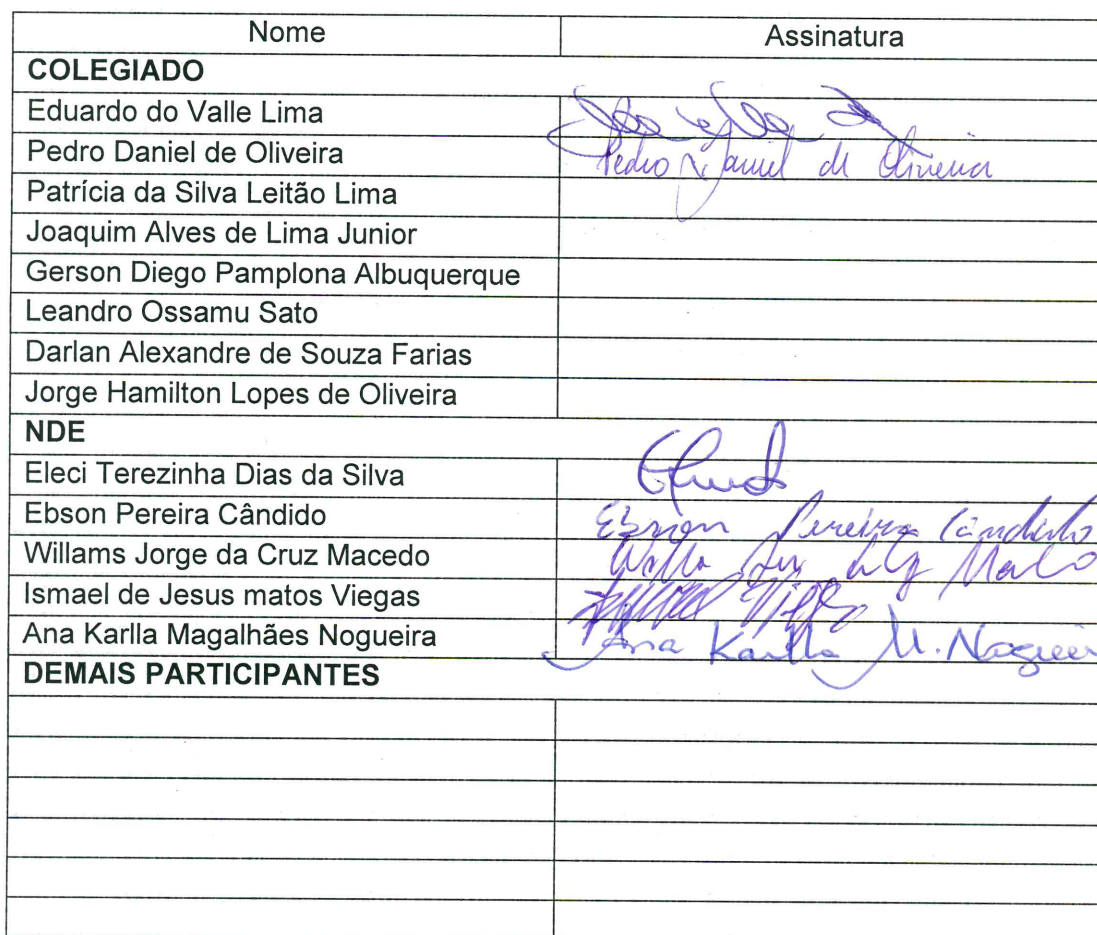 Nome Assinatura
COLEGIADO
Eduardo do Valle Lima
Pedro Daniel de Oliveira Pedro Daniel de Oliveira
Patrícia da Silva Leitão Lima
Joaquim Alves de Lima Junior
Gerson Diego Pamplona Albuquerque
Leandro Ossamu Sato
Darlan Alexandre de Souza Farias
Jorge Hamilton Lopes de Oliveira
NDE
Eleci Terezinha Dias da Silva
Ebson Pereira Cândido Ebson Pereira Cândido
Willams Jorge da Cruz Macedo
Ismael de Jesus matos Viegas
Ana Karlla Magalhães Nogueira Ana Karlla M. Nogueir
DEMAIS PARTICIPANTES